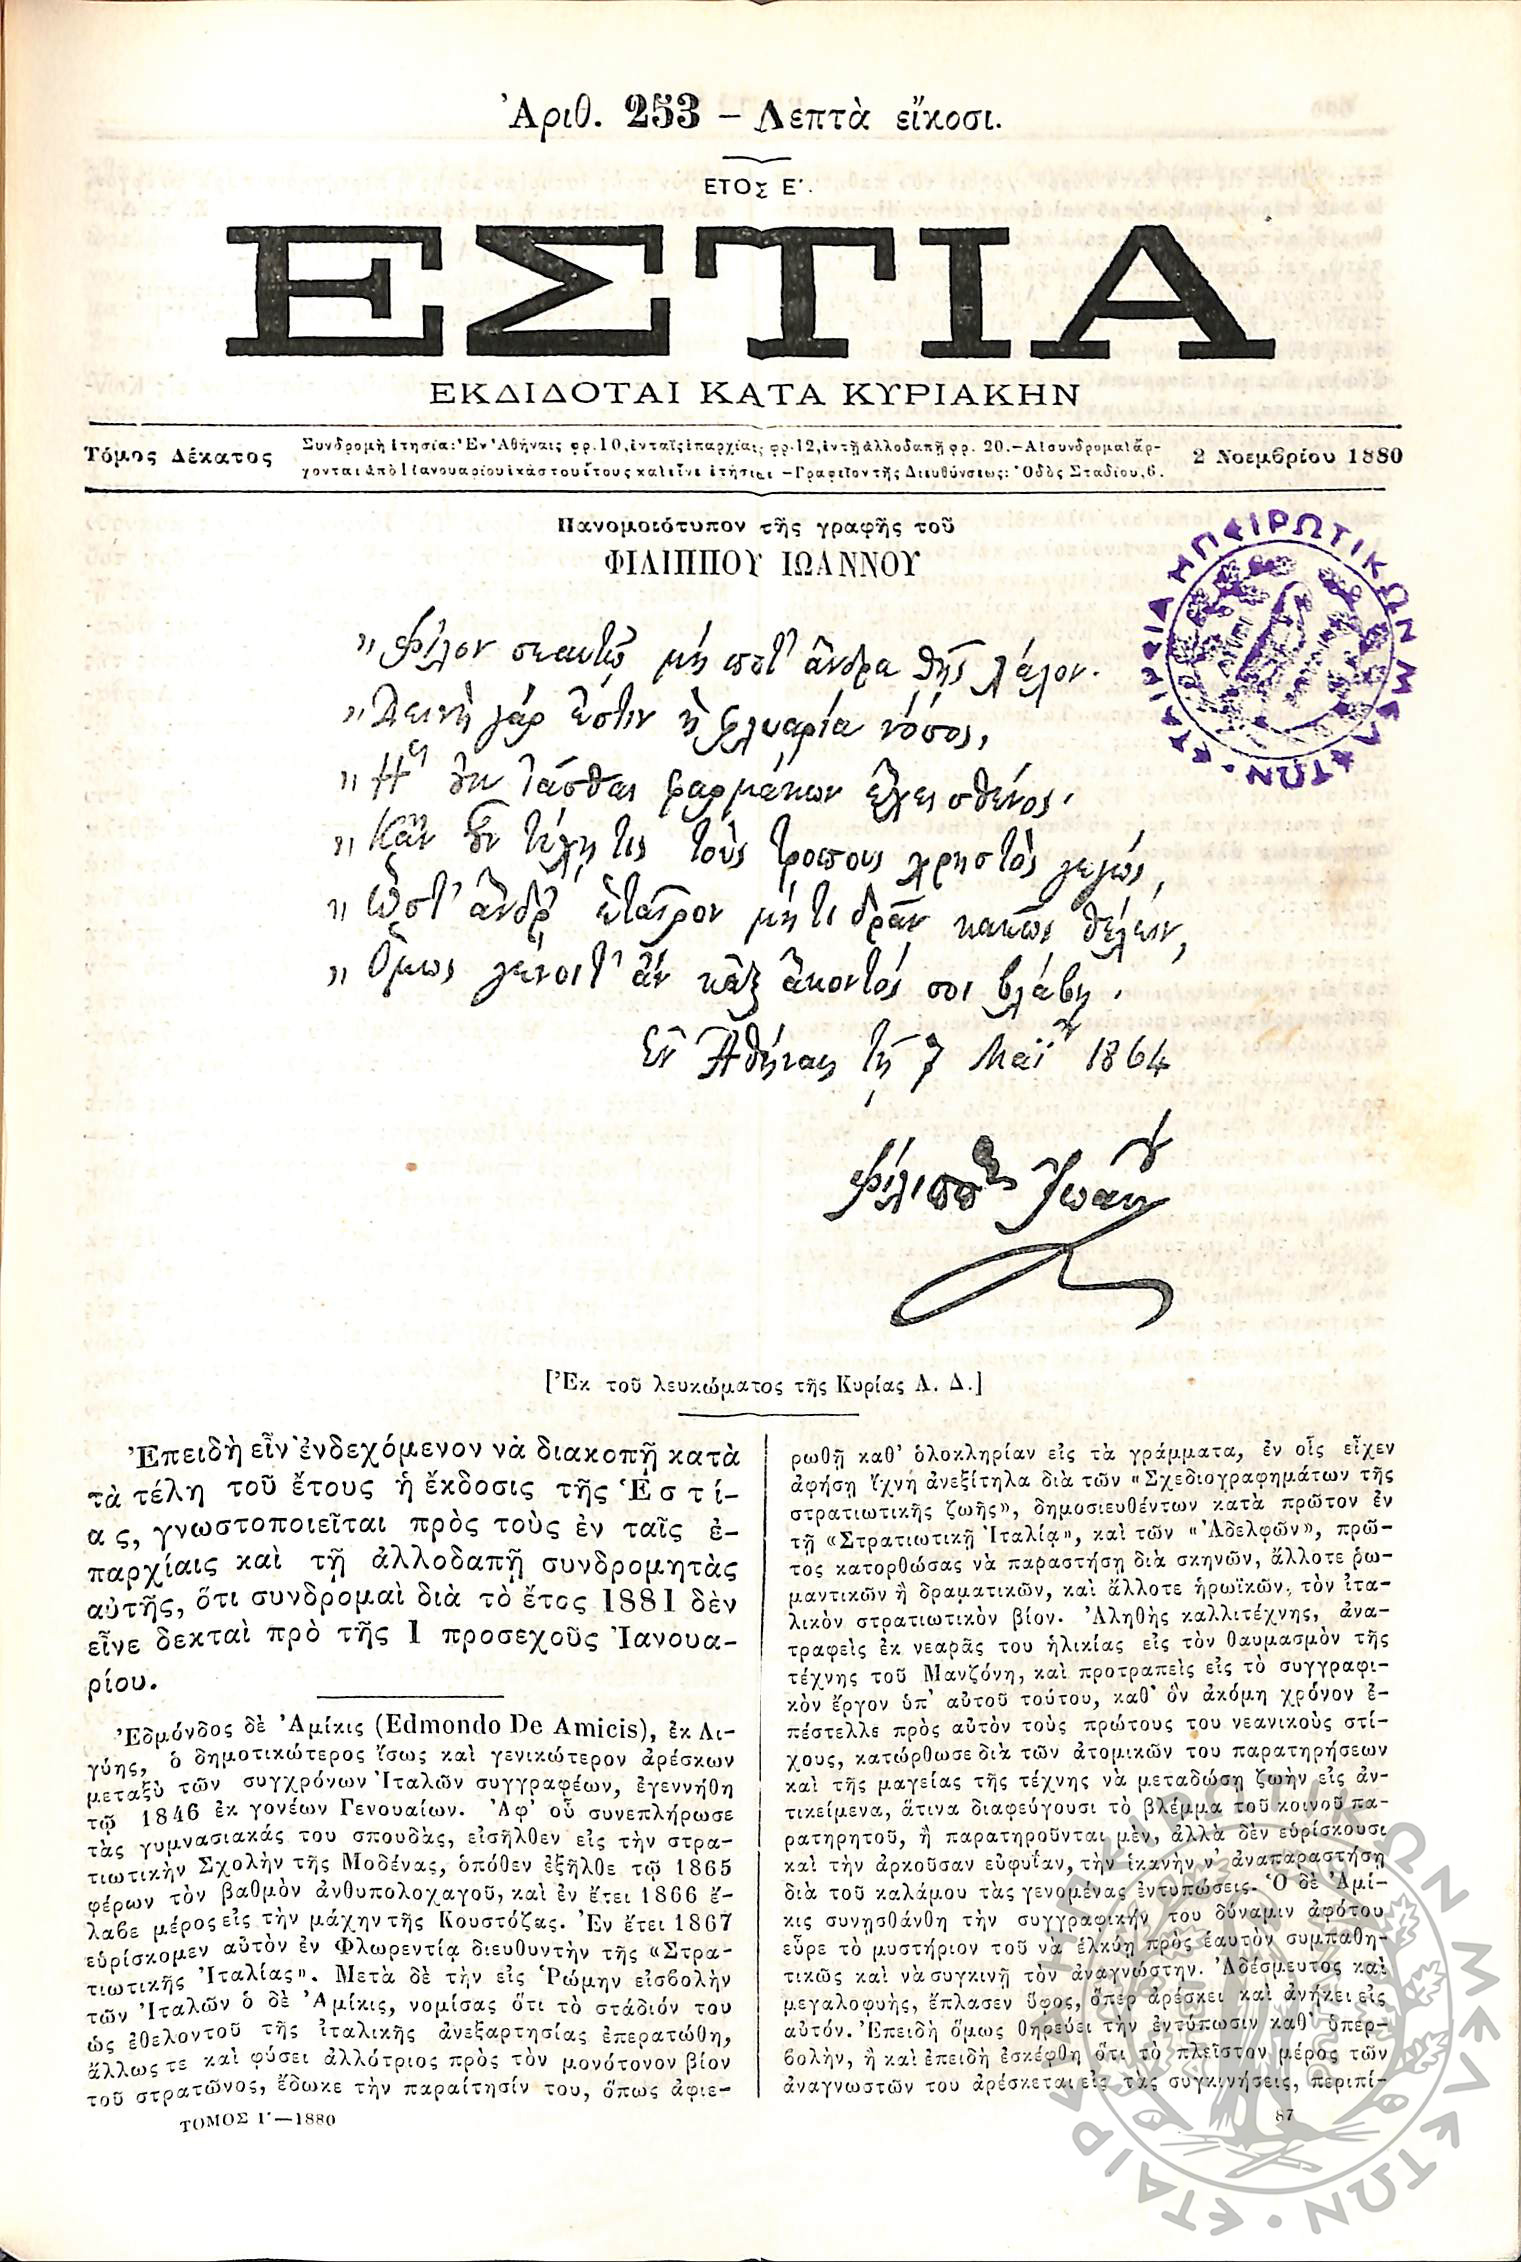 Ἀριθ. 253 – Λεπτὰ εἴκοσι.
ΕΤΟΣ Ε΄.
ΕΣΤΙΑ
ΕΚΔΙΔΟΤΑΙ ΚΑΤΑ ΚΥΡΙΑΚΗΝ
Τόμος Δέκατος
Συνδρομὴ ἐτησία: Ἐν Ἀθήναις φρ. 10, ἐν ταῖς ἐπαρχίαις φρ. 12, ἐν τῇ ἀλλοδαπῇ φρ. 20.—Αἱ συνδρομαὶ ἄρ-
χονται ἀπὸ 1 ἰανουαρίου ἑκάστου ἔτους καὶ εἶνε ἐτήσιαι —Γραφεῖον τῆς Διευθύνσεως: Ὁδὸς Σταδίου, 6.
2 Νοεμβρίου 1880
Πανομοιότυπον τῆς γραφῆς τοῦ
ΦΙΛΙΠΠΟΥ ΙΩΑΝΝΟΥ
„ Φίλον σεαυτῷ μή ποτ' ἄνδρα θῇς λάλον.
„ Δεινὴ γάρ ἐστιν ἡ φλυαρία νόσος,
„ Ἣν ἰᾶσθαι φαρμάκων ἔχει σθένος.
„ Κἂν ᾖ τις τοὺς τρόπους χρηστὸς γεγώς,
„ Ὥστ' ἄνδρ' ἑταῖρον μή τι δρᾶν κακῶς θέλειν,
„ Ὅμως γένοιτ' ἂν κἀξ ἄκοντός σοι βλάβη.
Ἐν Ἀθήναις τῇ 7 Μαΐου 1864
Φίλιππος Ἰωάννου
[Ἐκ τοῦ λευκώματος τῆς Κυρίας Α. Δ.]
Ἐπειδὴ εἶν' ἐνδεχόμενον νὰ διακοπῇ κατὰ
τὰ τέλη τοῦ ἔτους ἡ ἔκδοσις τῆς Ἑστί-
ας, γνωστοποιεῖται πρὸς τοὺς ἐν ταῖς ἐ-
παρχίαις καὶ τῇ ἀλλοδαπῇ συνδρομητὰς
αὐτῆς, ὅτι συνδρομαὶ διὰ τὸ ἔτος 1881 δὲν
εἶνε δεκταὶ πρὸ τῆς 1 προσεχοῦς Ἰανουα-
ρίου.
Ἐδμόνδος δὲ Ἀμίκις (Edmondo De Amicis), ἐκ Λι-
γύης, ὁ δημοτικώτερος ἴσως καὶ γενικώτερον ἀρέσκων
μεταξὺ τῶν συγχρόνων Ἰταλῶν συγγραφέων, ἐγεννήθη
τῷ 1846 ἐκ γονέων Γενουαίων. Ἀφ' οὗ συνεπλήρωσε
τὰς γυμνασιακάς του σπουδὰς, εἰσῆλθεν εἰς τὴν στρα-
τιωτικὴν Σχολὴν τῆς Μοδένας, ὁπόθεν ἐξῆλθε τῷ 1865
φέρων τὸν βαθμὸν ἀνθυπολοχαγοῦ, καὶ ἐν ἔτει 1866 ἔ-
λαβε μέρος εἰς τὴν μάχην τῆς Κουστόζας. Ἐν ἔτει 1867
εὑρίσκομεν αὐτὸν ἐν Φλωρεντίᾳ διευθυντὴν τῆς «Στρα-
τιωτικῆς Ἰταλίας». Μετὰ δὲ τὴν εἰς Ῥώμην εἰσβολὴν
τῶν Ἰταλῶν ὁ δὲ Ἀμίκις, νομίσας ὅτι τὸ στάδιόν του
ὡς ἐθελοντοῦ τῆς ἰταλικῆς ἀνεξαρτησίας ἐπερατώθη,
ἄλλως τε καὶ φύσει ἀλλότριος πρὸς τὸν μονότονον βίον
τοῦ στρατῶνος, ἔδωκε τὴν παραίτησίν του, ὅπως ἀφιε-
ρωθῇ καθ' ὁλοκληρίαν εἰς τὰ γράμματα, ἐν οἷς εἶχεν
ἀφήσῃ ἴχνη ἀνεξίτηλα διὰ τῶν «Σχεδιογραφημάτων τῆς
στρατιωτικῆς ζωῆς», δημοσιευθέντων κατὰ πρῶτον ἐν
τῇ «Στρατιωτικῇ Ἰταλίᾳ», καὶ τῶν «Ἀδελφῶν», πρῶ-
τος κατορθώσας νὰ παραστήσῃ διὰ σκηνῶν, ἄλλοτε ῥω-
μαντικῶν ἢ δραματικῶν, καὶ ἄλλοτε ἡρωϊκῶν, τὸν ἰτα-
λικὸν στρατιωτικὸν βίον. Ἀληθὴς καλλιτέχνης, ἀνα-
τραφεὶς ἐκ νεαρᾶς του ἡλικίας εἰς τὸν θαυμασμὸν τῆς
τέχνης τοῦ Μανζόνη, καὶ προτραπεὶς εἰς τὸ συγγραφι-
κὸν ἔργον ὑπ' αὐτοῦ τούτου, καθ' ὃν ἀκόμη χρόνον ἐ-
πέστελλε πρὸς αὐτὸν τοὺς πρώτους του νεανικοὺς στί-
χους, κατώρθωσε διὰ τῶν ἀτομικῶν του παρατηρήσεων
καὶ τῆς μαγείας τῆς τέχνης νὰ μεταδώσῃ ζωὴν εἰς ἀν-
τικείμενα, ἅτινα διαφεύγουσι τὸ βλέμμα τοῦ κοινοῦ πα-
ρατηρητοῦ, ἢ παρατηροῦνται μὲν, ἀλλὰ δὲν εὑρίσκουσι
καὶ τὴν ἀρκοῦσαν εὐφυΐαν, τὴν ἱκανὴν ν' ἀναπαραστήσῃ
διὰ τοῦ καλάμου τὰς γενομένας ἐντυπώσεις. Ὁ δὲ Ἀμί-
κις συνῃσθάνθη τὴν συγγραφικήν του δύναμιν ἀφότου
εὗρε τὸ μυστήριον τοῦ νὰ ἑλκύῃ πρὸς ἑαυτὸν συμπαθη-
τικῶς καὶ νὰ συγκινῇ τὸν ἀναγνώστην. Ἀδέσμευτος καὶ
μεγαλοφυὴς, ἔπλασεν ὕφος, ὅπερ ἀρέσκει καὶ ἀνήκει εἰς
αὐτόν. Ἐπειδὴ ὅμως θηρεύει τὴν ἐντύπωσιν καθ' ὑπέρ-
βολὴν, ἢ καὶ ἐπειδὴ ἐσκέφθη ὅτι τὸ πλεῖστον μέρος τῶν
ἀναγνωστῶν του ἀρέσκεται εἰς τὰς συγκινήσεις, περιπί-
ΤΟΜΟΣ Ι΄—1880
87
ΕΤΑΙΡΕΙΑ ΗΠΕΙΡΩΤΙΚΩΝ ΜΕΛΕΤΩΝ
ΕΤΑΙΡΕΙΑ ΗΠΕΙΡΩΤΙΚΩΝ ΜΕΛΕΤΩΝ